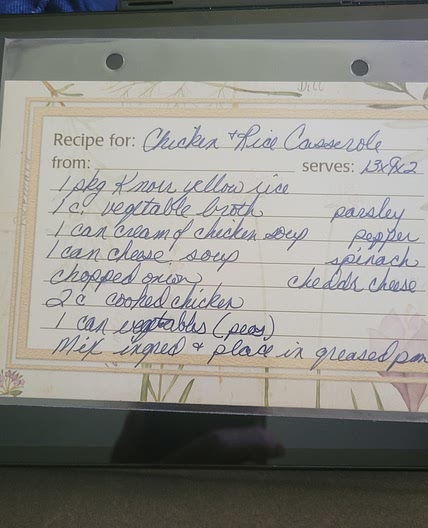 Dill
Recipe for: Chicken + Rice Casserole
from: serves: 13x9x2
1 pkg Knorr yellow rice
1 c. vegetable broth parsley
1 can cream of chicken soup pepper
1 can cheese soup spinach
chopped onion cheddr cheese
2 c cooked chicken
1 can vegetables (peas)
Mix ingred + place in greased pan